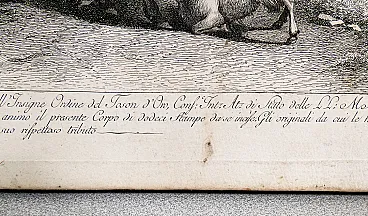 ll'Insigne Ordine del Toson d'Oro, Conſ.e Intz Atz di Stato delle LL. Mo
animo il presente Corpo di dodeci Stampe da se inciſe. Gli originali da cui le
suo riſpettoso tributo